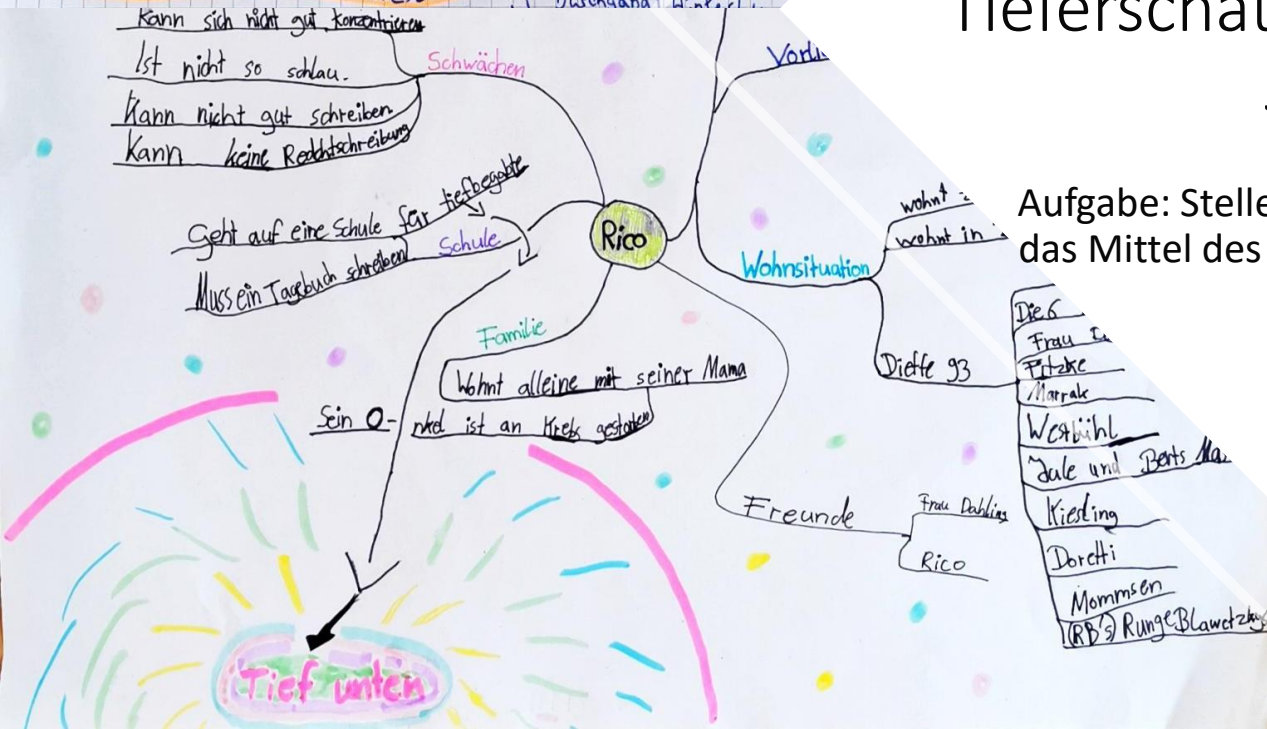 Tieferscha
Kann sich nicht gut konzentrieren
Ist nicht so schlau.
Kann nicht gut schreiben
Kann keine Rechtschreibung
Schwächen
Geht auf eine Schule für tiefbegabte
Muss ein Tagebuch schreiben
Schule
Rico
Familie
Wohnt alleine mit seiner Mama
Sein O- nkel ist an Krebs gestorben
Tief unten
Wohnsituation
wohnt
wohnt in
Aufgabe: Stelle
das Mittel des
Dieffe 93
Die 6
Frau
Fitzke
Marrak
Westbühl
Jule und Berts Ma
Kiesling
Doretti
Mommsen
(RB's) Runge Blawetzky
Freunde
Frau Dahling
Rico